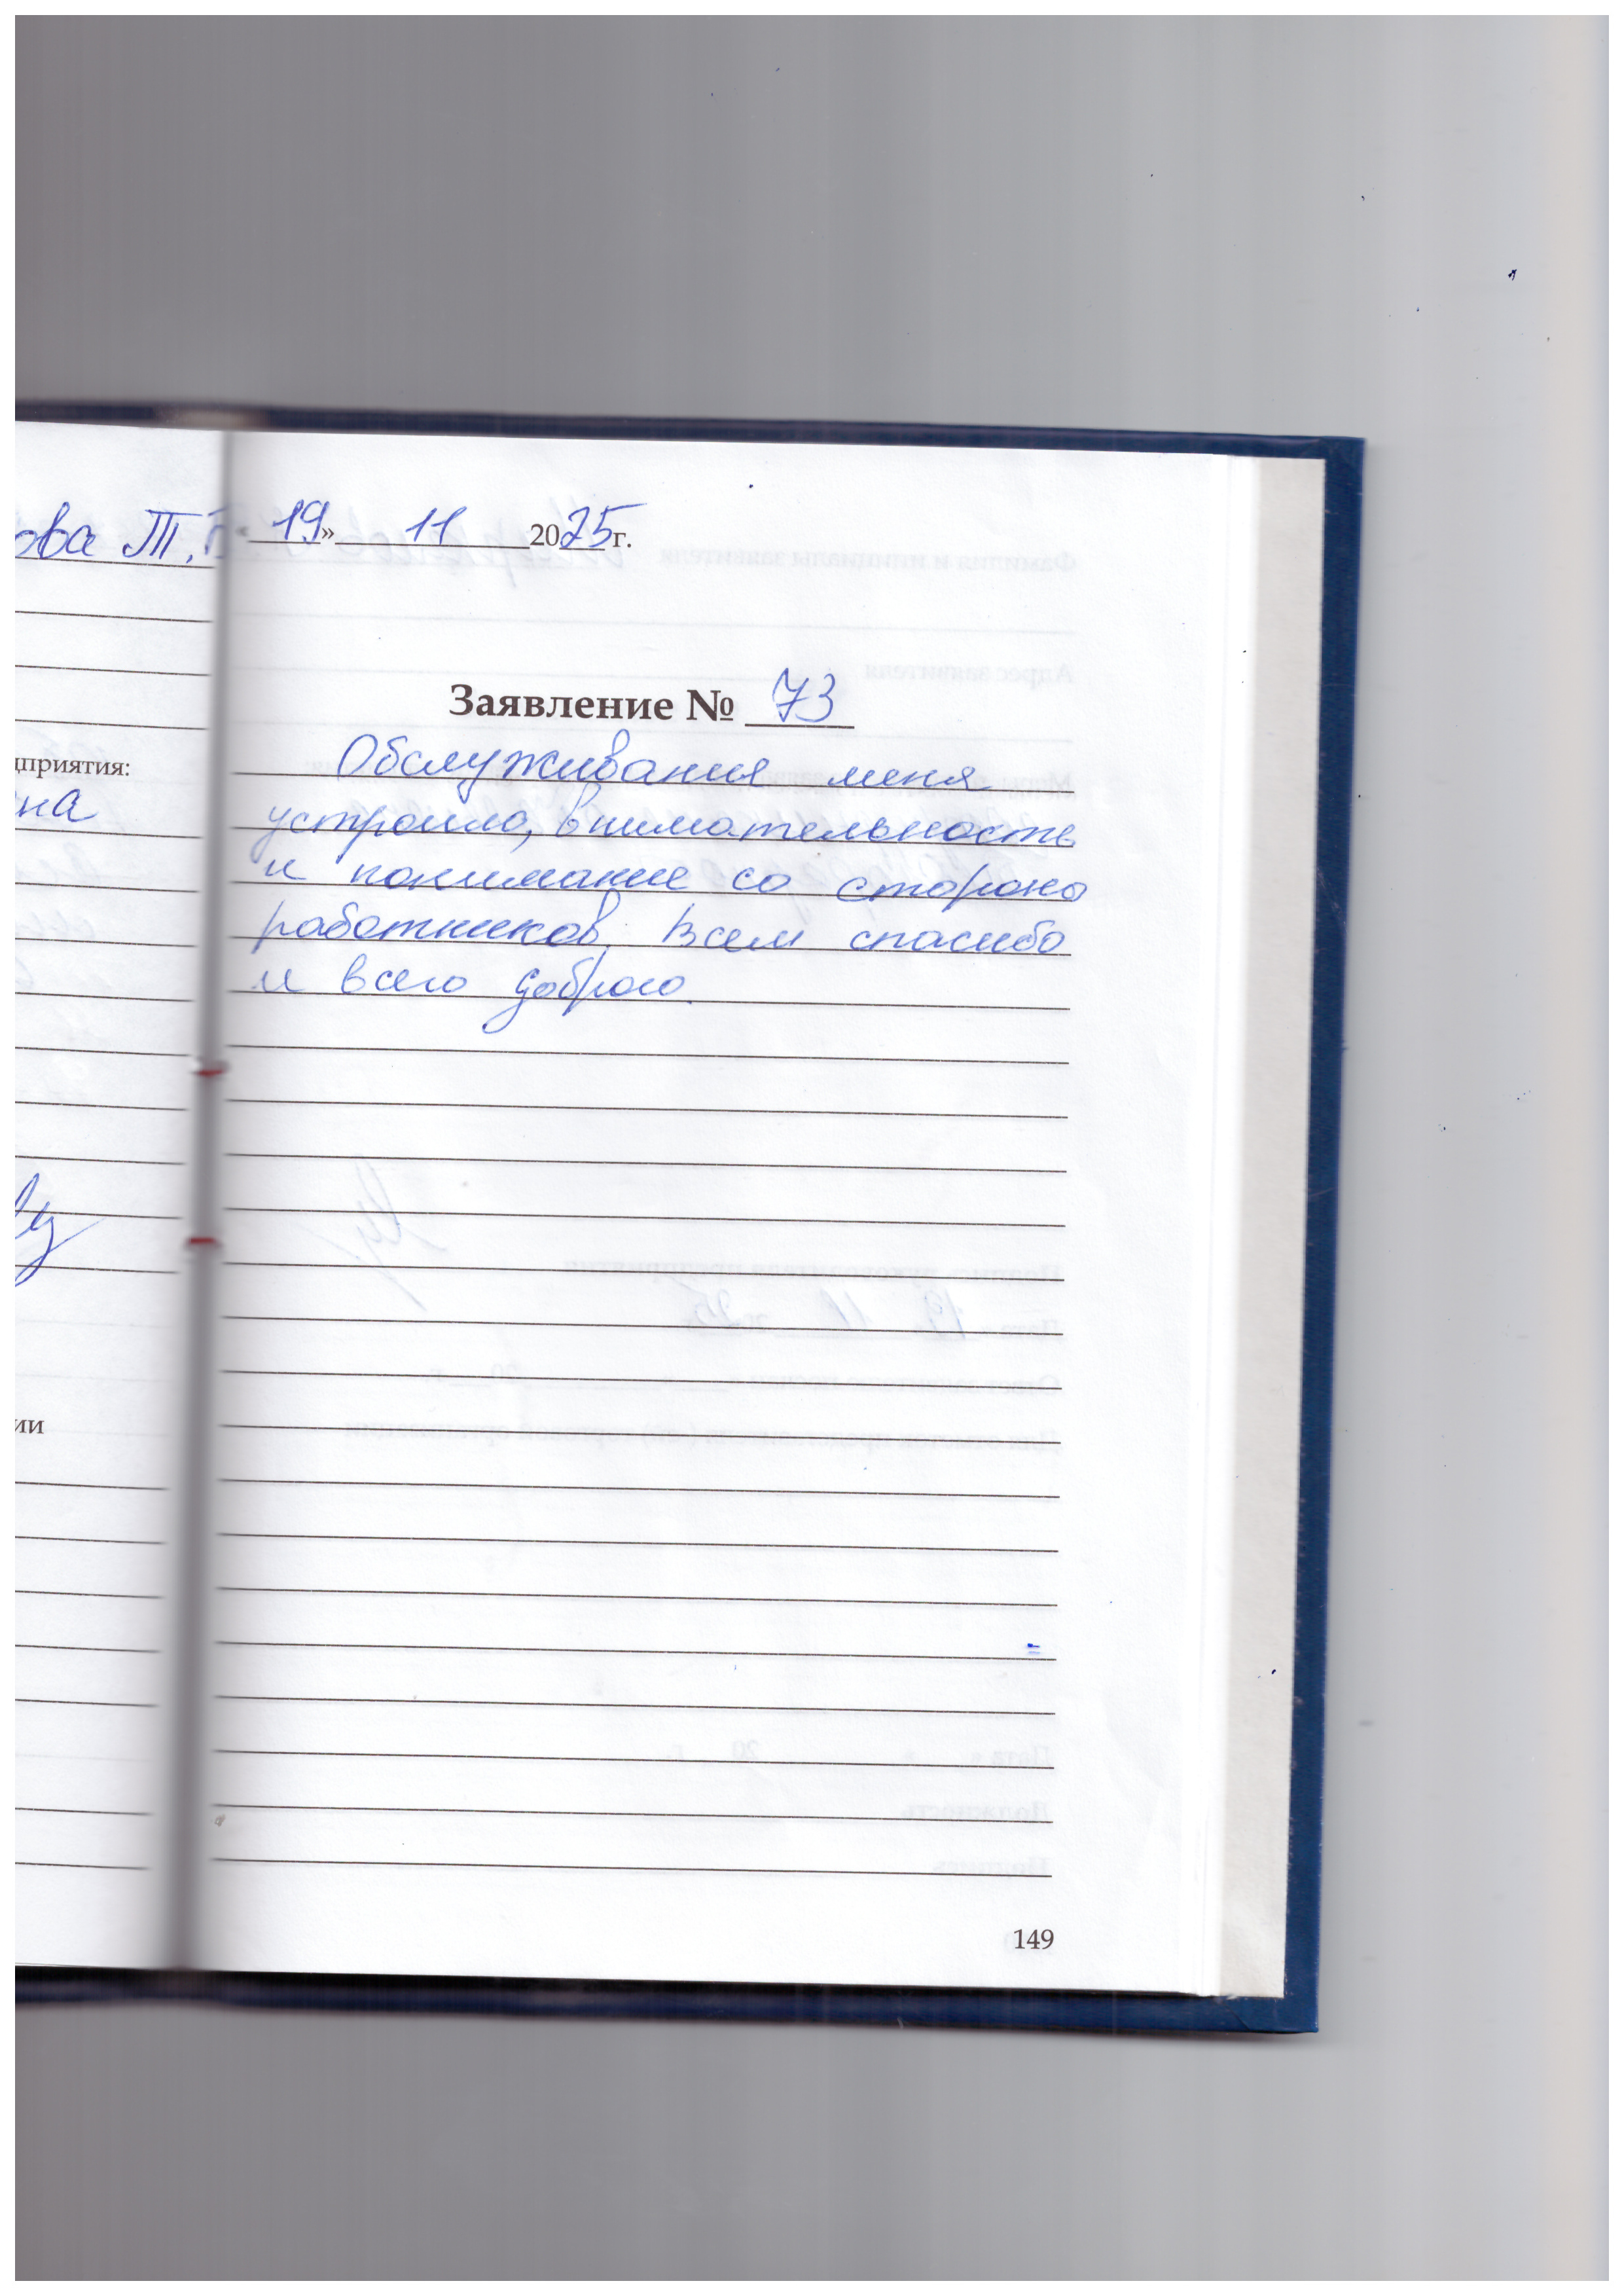 ова Т.
19» 11 2025 г.
Заявление № 73
дприятия:
на
Обслуживания меня
устроило, внимательность
и понимание со стороны
работников. Всем спасибо
и всего доброго.
ии
149